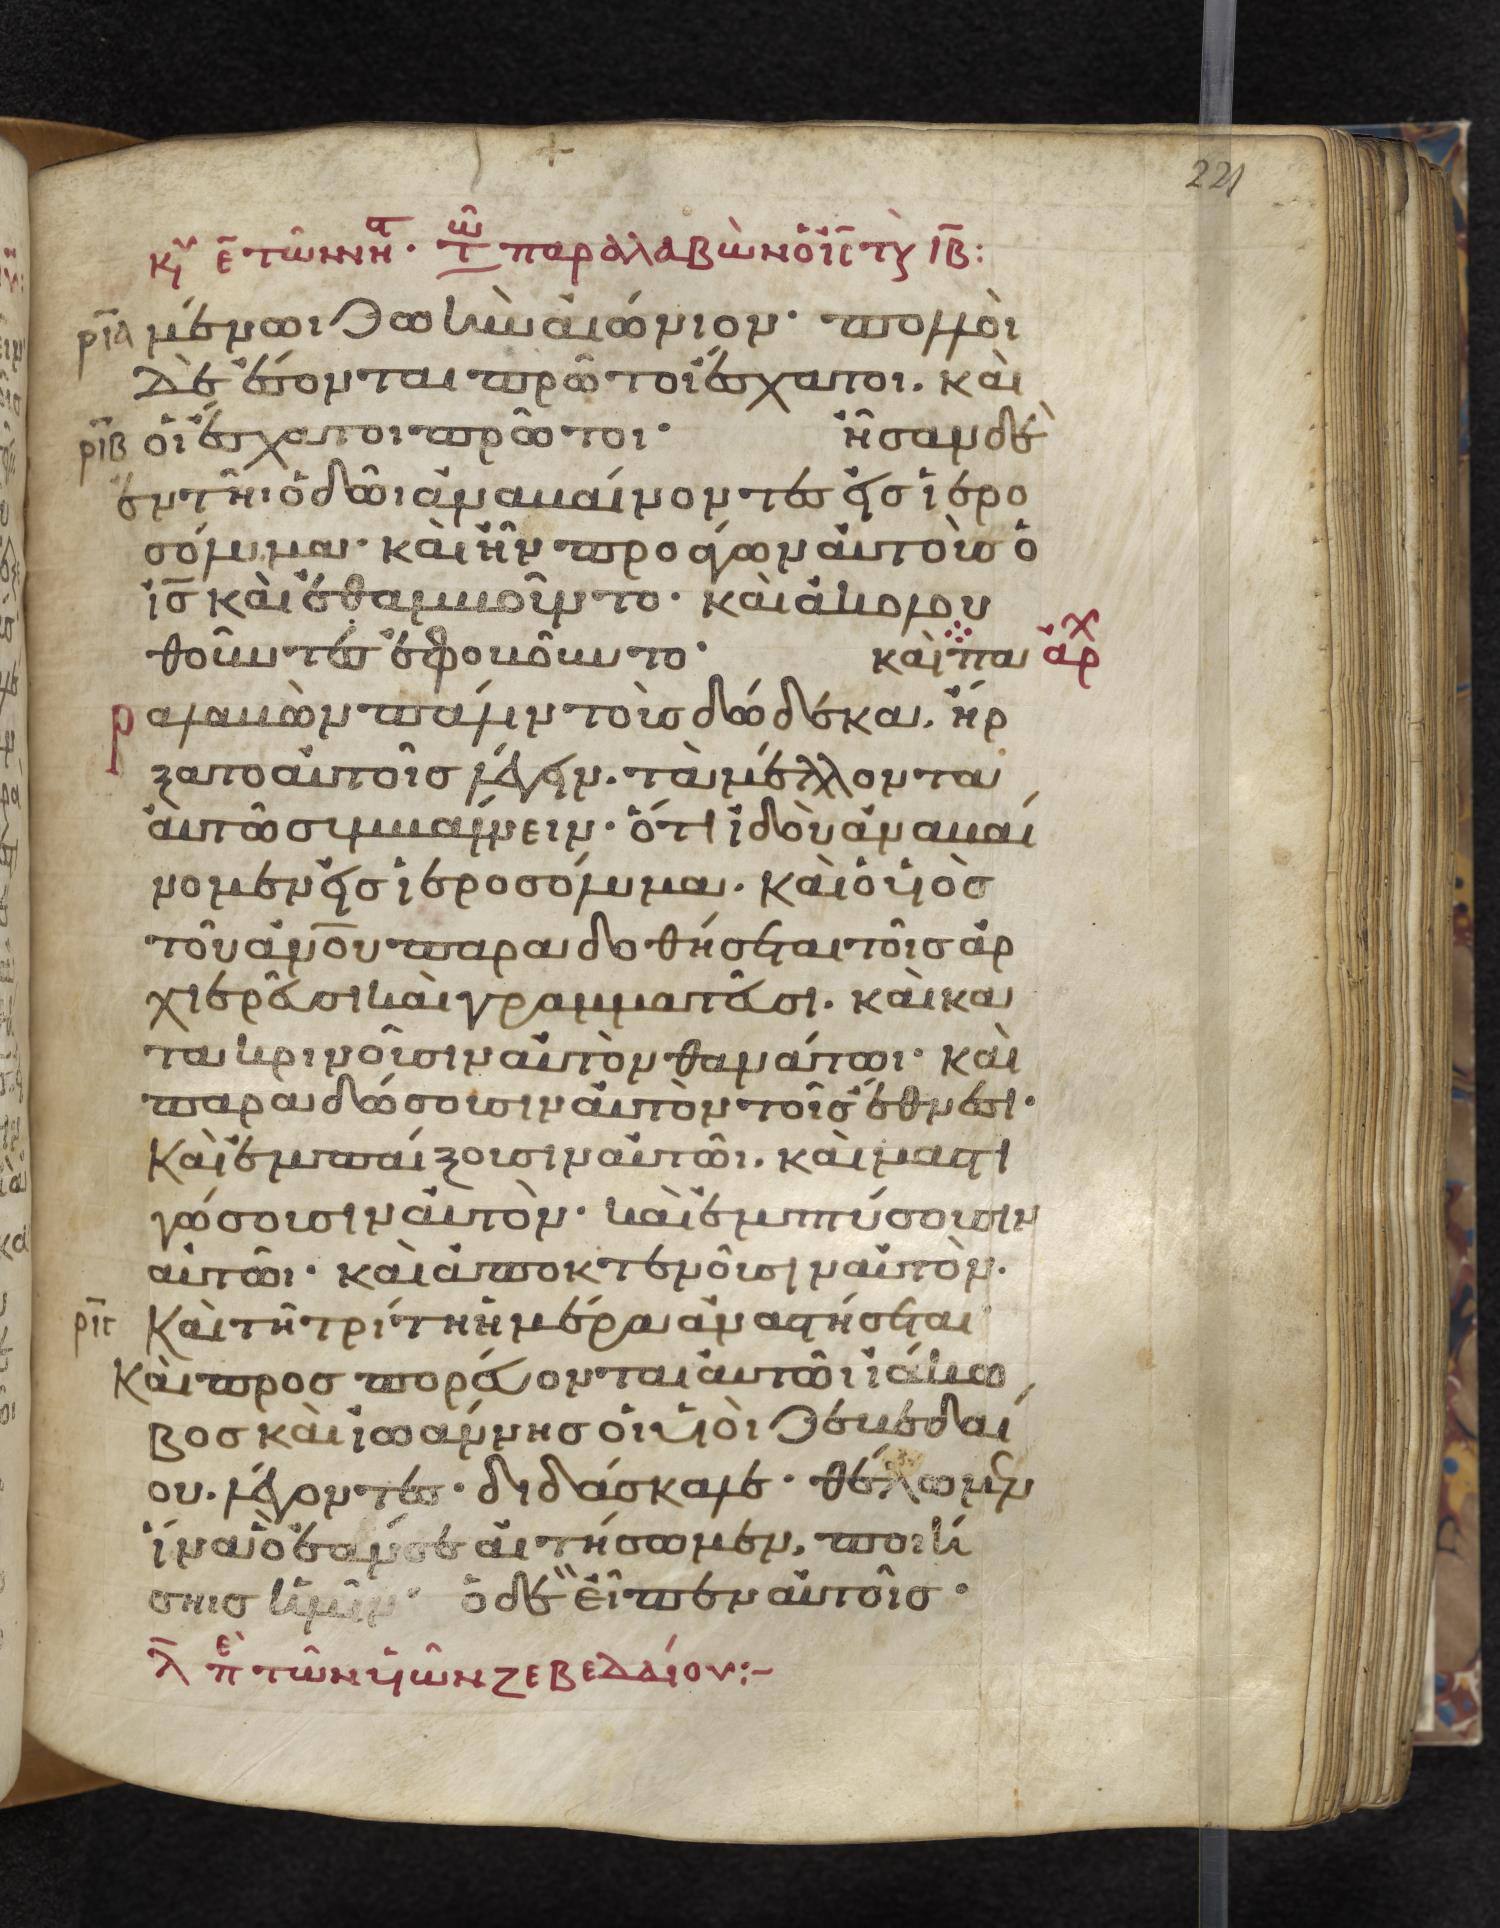 221
κυ ε̄ τῶν νη στ · τῶ τ̄ παραλαβὼν ὁ ι̅ς̅ τοὺς ι̅β̅:
ρ̅ι̅α̅ μένωι ζωὴν ἀιώνιον· πολλοὶ
δὲ ἔσονται πρῶτοι ἔσχατοι. καὶ
ρ̅ι̅β̅ ὁι ἔσχατοι πρῶτοι· ἦσαν δὲ
ἐν τῆι ὁδῶι ἀναβαίνοντες εἰς ἱερο
σόλυμα· καὶ ἦν προάγων ἀυτοὺς ὁ
ι̅ς̅ καὶ ἐθαμβοῦντο· καὶ ἀκολου
θοῦντες ἐφοβοῦντο· καὶ πα ἀρχ
ραλαβὼν πάλιν τοὺς δώδεκα. ἤρ
ξατο ἀυτοῖς λέγειν. τὰ μέλλοντα
ἀυτῶ συμβαίνειν· ὅτι ἰδοὺ ἀναβαί
νομεν εἰς ἱεροσόλυμα. καὶ ὁ υἱὸς
τοῦ α̅ν̅ο̅υ̅ παραδοθήσεται τοῖς ἀρ
χιερεῦσι καὶ γραμματεῦσι. καὶ κα
τακρινοῦσιν ἀυτὸν θανάτωι· καὶ
παραδώσουσιν ἀυτὸν τοῖς ἔθνεσι·
Καὶ ἐμπαίξουσιν ἀυτῶι. καὶ μαστι
γώσουσιν ἀυτὸν· καὶ ἐμπτύσουσιν
ἀυτῶι· καὶ ἀποκτενοῦσιν ἀυτὸν.
ρ̅ι̅γ̅ Καὶ τῆ τρίτη ἡμέρα ἀναστήσεται
Καὶ προσπορεύονται ἀυτῶι ἰάκω
βος καὶ ἰωάννης ὁι υἱοὶ ζεβεδαί
ου. λέγοντες· διδάσκαλε· θέλομεν
ἵνα ὃ ἐάν σε αἰτήσωμεν, ποιή
σηις ἡμῖν· ὁ δὲ εἶπεν ἀυτοῖς·
λ̅ πε τῶν υἱῶν ζεβεδαίου:~